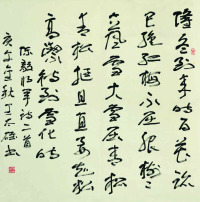 隆冬到来时百花迹
已绝红梅不屈服树々
立風雪大雪压青松
青松挺且直要知松
高洁待到雪化时
陈毅将军诗二首